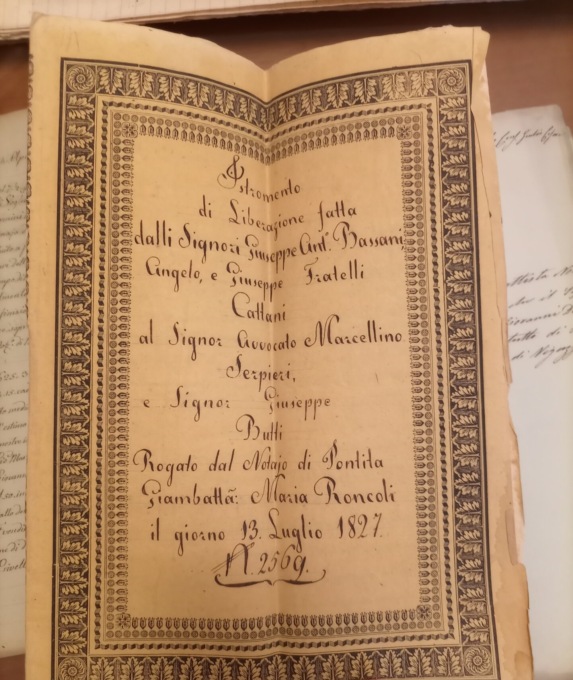 Istromento
di Liberazione fatta
dalli Signori Giuseppe Ant. Bassani,
Angelo, e Giuseppe Fratelli
Cattani
al Signor Avvocato Marcellino
Serpieri,
e Signor Giuseppe
Butti
Rogato dal Notajo di Pontita
Giambatta: Maria Roncoli
il giorno 13. Luglio 1827.
N. 2569.